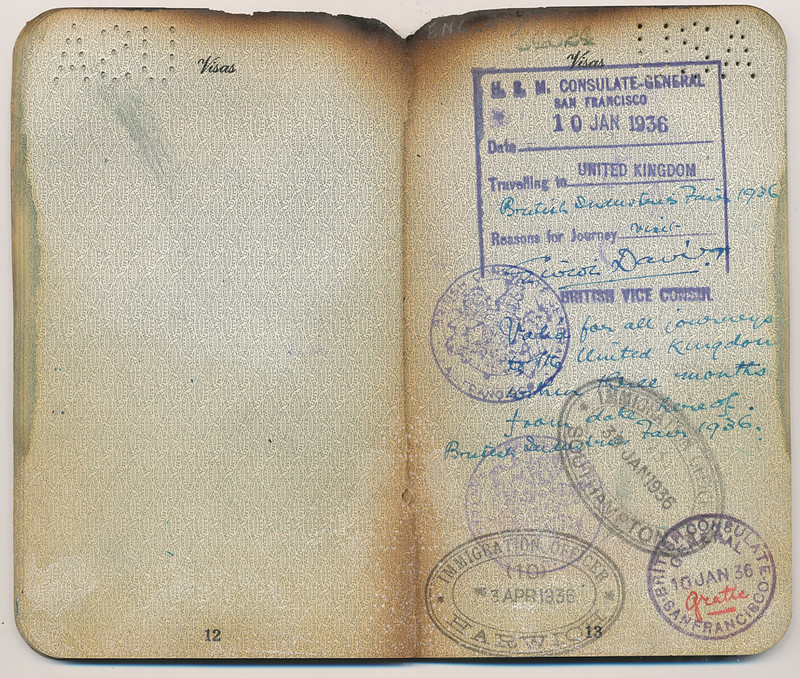 Visas
Visas
H. B. M. CONSULATE-GENERAL
SAN FRANCISCO
10 JAN 1936
Date
Travelling to UNITED KINGDOM
British Industries Fair 1936
Reasons for Journey visit
Davis
BRITISH VICE CONSUL
Valid for all journeys
to the United Kingdom
within three months
from date hereof.
British Industries Fair 1936.
IMMIGRATION OFFICER
JAN 1936
SOUTHAMPTON
IMMIGRATION OFFICER
(10)
3 APR 1936
HARWICH
BRITISH CONSULATE
GENERAL
10 JAN 36
gratis
SAN FRANCISCO
12
13